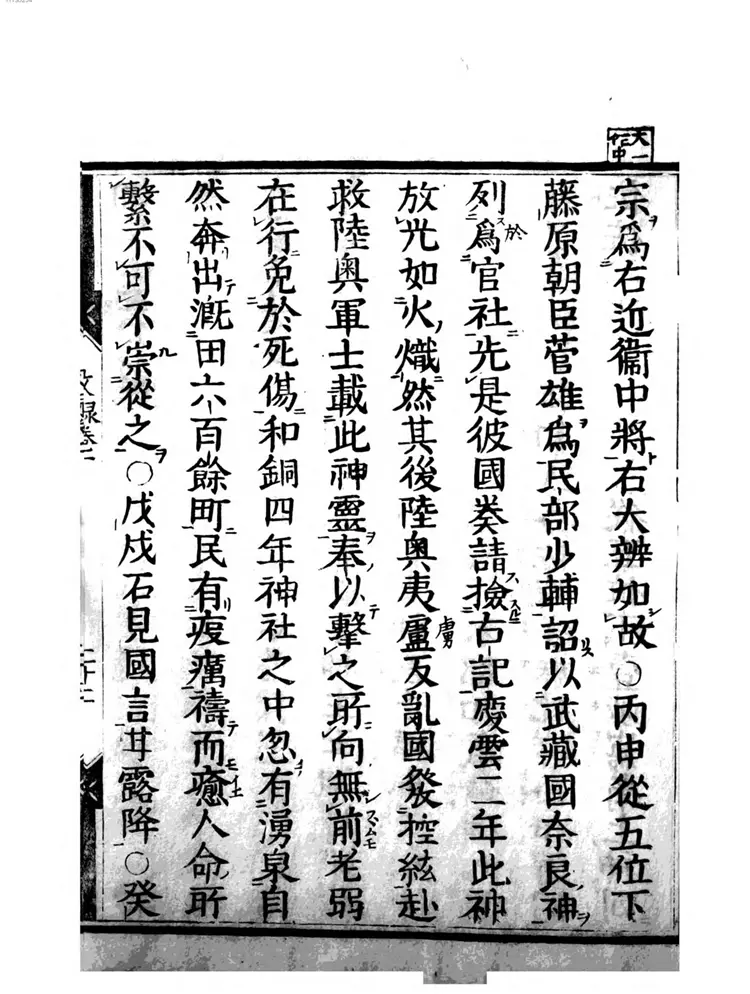 宗為右近衞中將右大辨如故○丙申從五位下
藤原朝臣菅雄為民部少輔詔以武藏國奈良神
列為官社先是彼國奏請撿古記慶雲二年此神
放光如火熾然其後陸奥夷虜反亂國發控絃赴
救陸奥軍士載此神靈奉以擊之所向無前老弱
在行免於死傷和銅四年神社之中忽有湧泉自
然奔出漑田六百餘町民有疫癘禱而癒人命所
繫不可不崇從之○戊戌石見國言甘露降○癸